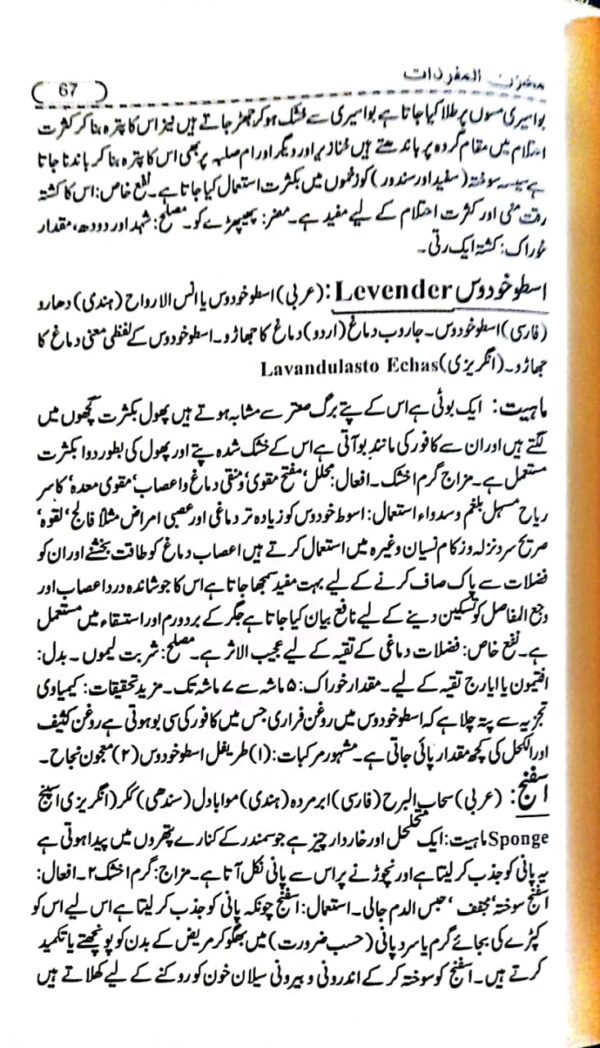 مخزن المفردات
67
بواسیری مسوں پر طلا کیا جاتا ہے بواسیری سے خشک ہو کر جھڑ جاتے ہیں نیز اس کا پترہ بنا کر کثرت
احتلام میں مقام گردہ پر باندھتے ہیں خنازیر اور دیگر اورام صلبہ پر بھی اس کا پترہ بنا کر باندنا جاتا
ہے سیسہ سوختہ (سفید اور سندور) کو زخموں میں بکثرت استعمال کیا جاتا ہے۔ نفع خاص: اس کا کشتہ
رقت منی اور کثرت احتلام کے لیے مفید ہے۔ مضر: پھیپھڑے کو۔ مصلح: شہد اور دودھ، مقدار
خوراک: کشتہ ایک رتی۔
اسطوخودوس Levender: (عربی) اسطوخودوس یا انس الارواح (ہندی) دھارو
(فارسی) اسطوخودوس۔ جاروب دماغ (اردو) دماغ کا جھاڑو۔ اسطوخودوس کے لفظی معنی دماغ کا
جھاڑو۔ (انگریزی) Lavandulasto Echas
ماہیت: ایک بوٹی ہے اس کے پتے برگ صعتر سے مشابہ ہوتے ہیں پھول بکثرت گچھوں میں
لگتے ہیں اور ان سے کافور کی مانند بو آتی ہے اس کے خشک شدہ پتے اور پھول کی بطور دوا بکثرت
مستعمل ہے۔ مزاج گرم ا خشک۔ افعال: محلل، مفتح مقوی، و منقی دماغ و اعصاب، مقوی معدہ، کاسر
ریاح مسہل بلغم و سدواء استعمال: اسوط خودوس کو زیادہ تر دماغی اور عصبی امراض مثلاً فالج، لقوہ،
صریح سرد نزلہ و زکام نسیان وغیرہ میں استعمال کرتے ہیں اعصاب دماغ کو طاقت بخشنے اور ان کو
فضلات سے پاک صاف کرنے کے لیے بہت مفید سمجھا جاتا ہے اس کا جوشاندہ درد اعصاب اور
وجع المفاصل کو تسکین دینے کے لیے نافع بیان کیا جاتا ہے جگر کے برد ورم اور استسقاء میں مستعمل
ہے۔ نفع خاص: فضلات دماغی کے تقیہ کے لیے عجیب الاثر ہے۔ مصلح: شربت لیموں۔ بدل:
افتیمون یا ایارج تقیہ کے لیے۔ مقدار خوراک: ۵ ماشہ سے ۷ ماشہ تک۔ مزید تحقیقات: کیمیاوی
تجزیہ سے پتہ چلا ہے کہ اسطوخودوس میں روغن فراری جس میں کافور کی سی بو ہوتی ہے روغن کثیف
اور الکحل کی کچھ مقدار پائی جاتی ہے۔ مشہور مرکبات: (۱) اطریفل اسطوخودوس (۲) معجون نجاح۔
اسفنج: (عربی) سحاب البرح (فارسی) ابر مردہ (ہندی) موابادل (سندھی) ککر (انگریزی اسپنج
Sponge ماہیت: ایک متخلخل اور خاردار چیز ہے جو سمندر کے کنارے پتھروں میں پیدا ہوتی ہے
یہ پانی کو جذب کر لیتا ہے اور نچوڑنے پر اس سے پانی نکل آتا ہے۔ مزاج: گرم ا خشک ۲۔ افعال:
اسفنج سوختہ، مجفف، حبس الدم جالی۔ استعمال: اسفنج چونکہ پانی کو جذب کر لیتا ہے اس لیے اس کو
کپڑے کی بجائے گرم یا سرد پانی (حسب ضرورت) میں بھگو کر مریض کے بدن کو پونچھتے یا تکمید
کرتے ہیں۔ اسفنج کو سوختہ کر کے اندرونی و بیرونی سیلان خون کو روکنے کے لیے کھلاتے ہیں